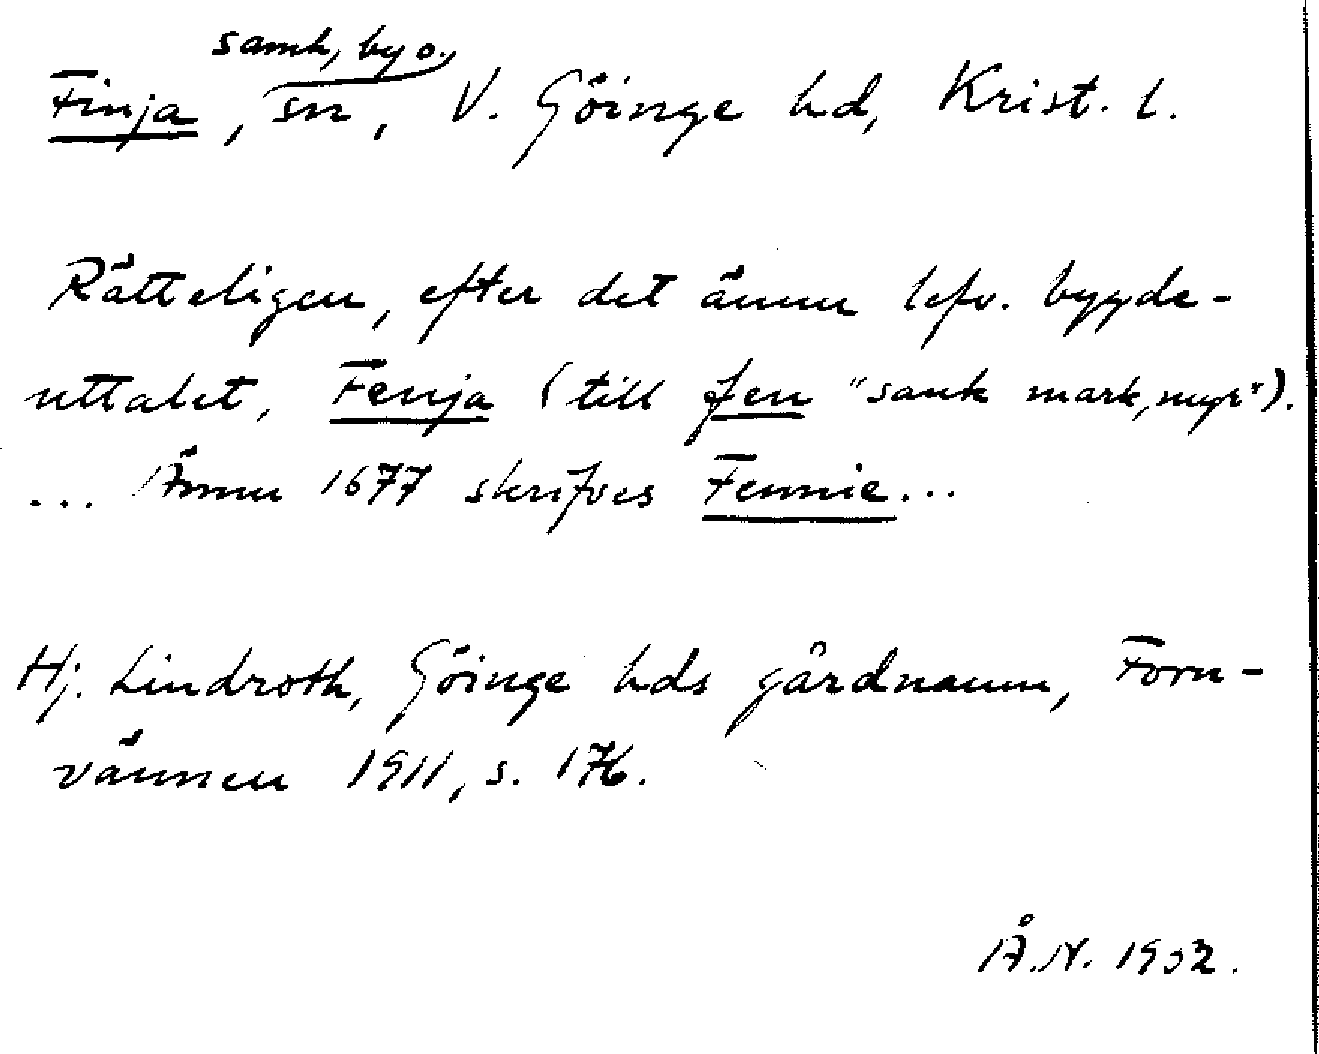 samh, by o.
Finja, sn, V. Göinge hd, Krist. l.
Rätteligen, efter det ännu lefv. bygde-
uttalet, Fenja (till fen "sank mark, myr").
... Ännu 1677 skrifves Fennie...
Hj. Lindroth, Göinge hds gårdnamn, Forn-
vännen 1911, s. 176.
Å.N. 1932.